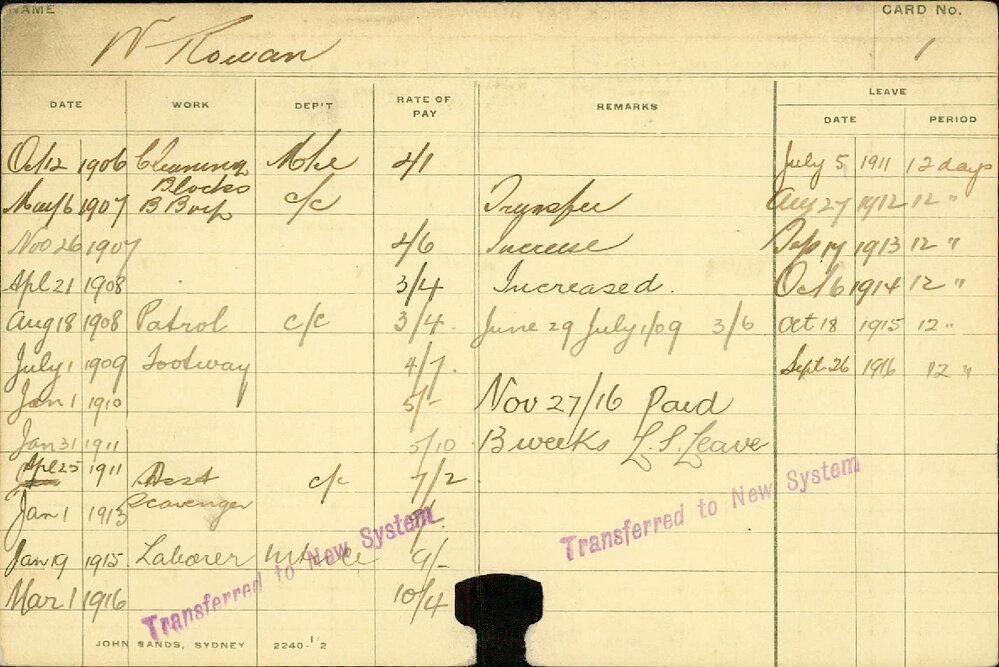 NAME CARD No.
W Rowan 1
DATE WORK DEP'T RATE OF PAY REMARKS LEAVE
DATE PERIOD
Oct 12 1906 Cleaning Blocks Mtce 2/1 July 5 1911 12 days
May 6 1907 B Boy c/c Transfer Aug 27 1912 12 "
Nov 26 1907 2/6 Increase Sep 17 1913 12 "
Apl 21 1908 3/4 Increased. Oct 6 1914 12 "
Aug 18 1908 Patrol c/c 3/4. June 29 July 1/09 3/6 Oct 18 1915 12 "
July 1 1909 Footway 4/7. Sept 26 1916 12 "
Jan 1 1910 5/- Nov 27/16 Paid
Jan 31 1911 5/10 13 weeks L.S. Leave
Apl 25 1911 Asst c/c 7/2
Jan 1 1913 Scavenger
Jan 19 1915 Laborer 9/-
Mar 1 1916 10/4
Transferred to New System
Transferred to New System
JOHN SANDS, SYDNEY 2240-1'2